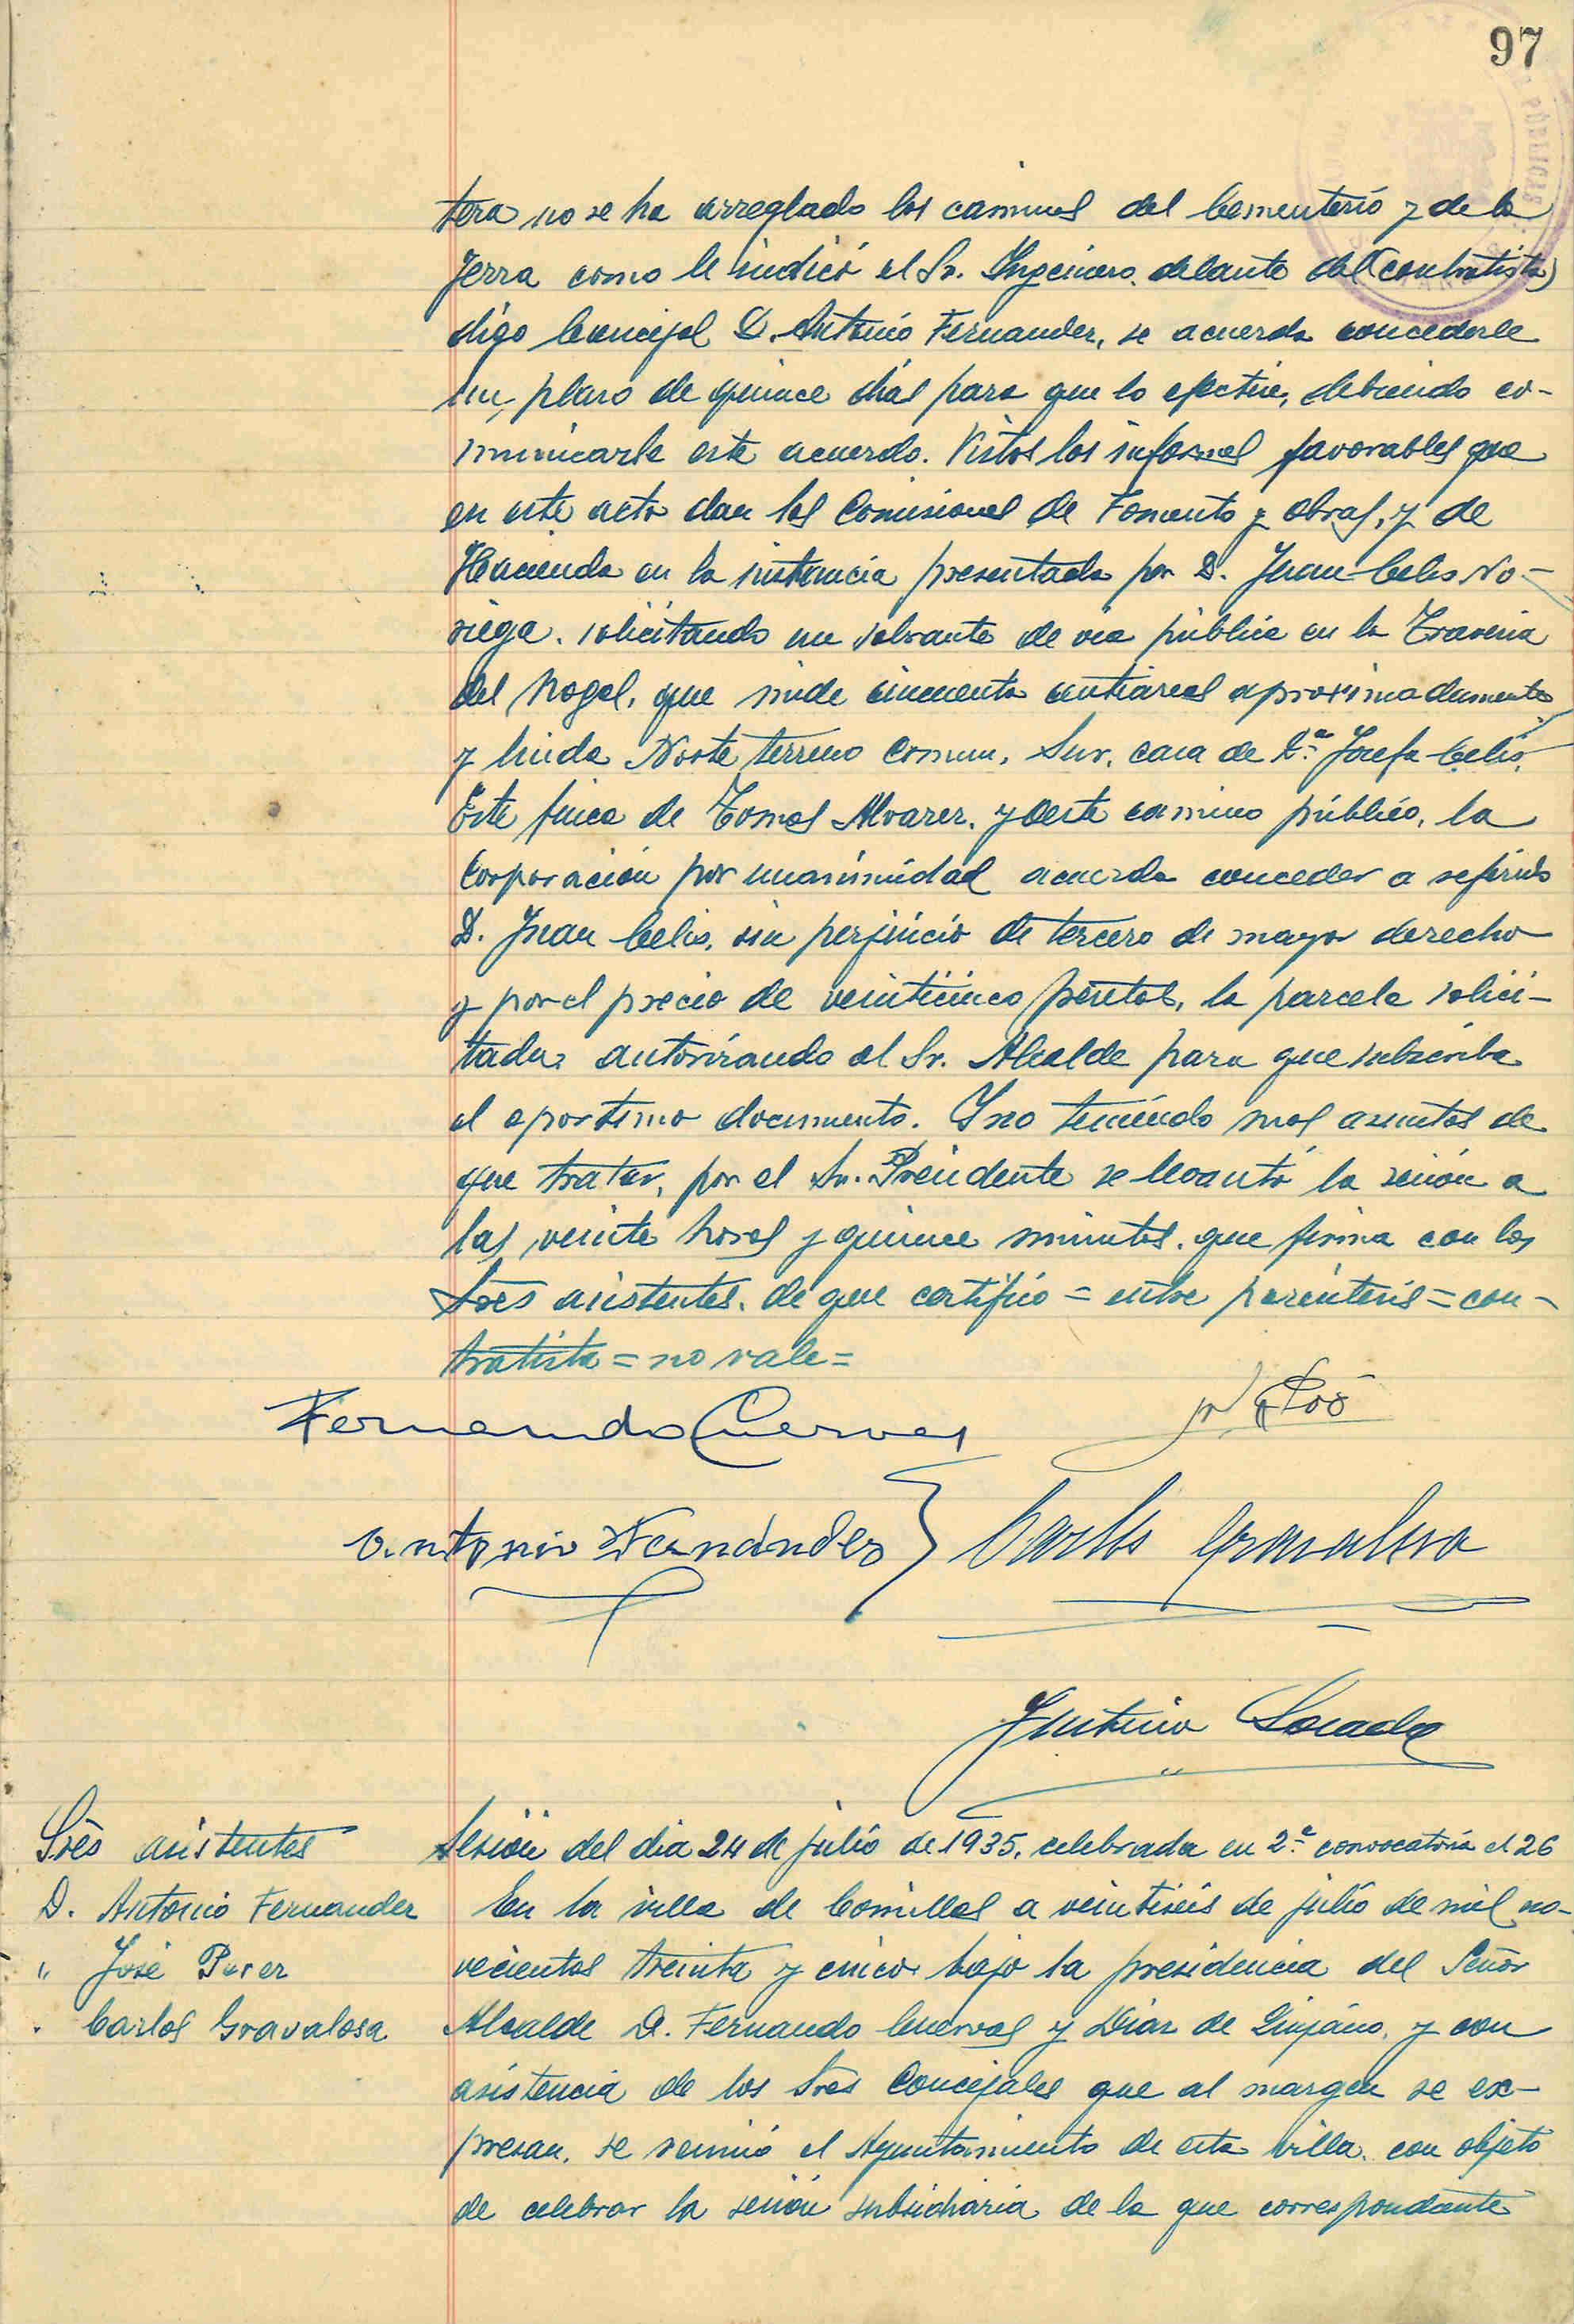 97
tera no se ha arreglado los caminos del Cementerio y de la
Jerra como le indicó el Sr. Ingeniero delante del (contratista)
digo Concejal D. Antonio Fernandez, se acuerda concederle
un plazo de quince días para que lo efectúe, debiendo co-
municarle este acuerdo. Vistos los informes favorables que
en este acto dan las Comisiones de Fomento y obras, y de
Hacienda en la instancia presentada por D. Juan Celis No-
riega, solicitando un sobrante de vía pública en la Travesia
del Nogal, que mide cincuenta centiareas aproximadamente
y linda Norte terreno comun, Sur, casa de Dª Josefa Celis,
Este finca de Tomas Alvarez, y Oeste camino público, la
Corporación por unanimidad acuerda conceder a referido
D. Juan Celis, sin perjuicio de tercero de mayor derecho
y por el precio de veinticinco pesetas, la parcela solici-
tada, autorizando al Sr. Alcalde para que subscriba
el oportuno documento. Y no teniendo mas asuntos de
que tratar, por el Sr. Presidente se levantó la sesión a
las veinte horas y quince minutos, que firma con los
Sres asistentes, de que certifico = entre parentesis = con-
tratista = no vale =
Fernando Cuervas
Antonio Fernández Carlos Gravalosa
Justino
Sres asistentes
D. Antonio Fernandez
" José Perez
" Carlos Gravalosa
Sesión del dia 24 de julio de 1935, celebrada en 2ª convocatoria el 26
En la villa de Comillas a veintiseis de julio de mil no-
vecientos treinta y cinco, bajo la presidencia del Señor
Alcalde D. Fernando Cuervas y Diaz de Quijano, y con
asistencia de los Sres Concejales que al margen se ex-
presan, se reunió el Ayuntamiento de esta villa, con objeto
de celebrar la sesión subsidiaria de la que correspondiente